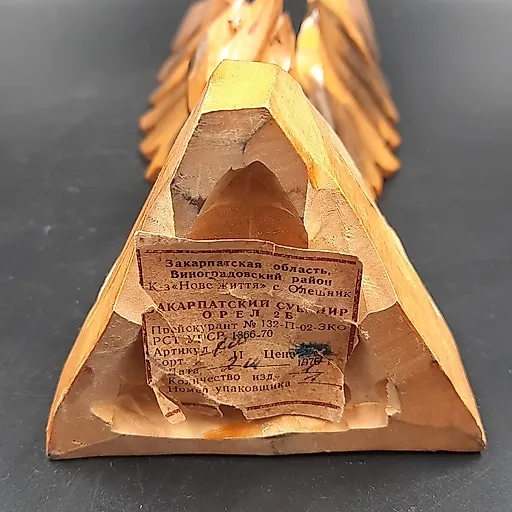 Закарпатская область,
Виноградовский район
К-з «Нове життя» с Олешник
ЗАКАРПАТСКИЙ СУВЕНИР
ОРЕЛ 2Б
Прейскурант № 132-П-02-ЭКО
РСТ УССР 1366-70
Артикул Цена
Сорт I
Дата,
Количество изд.
Номер упаковщика